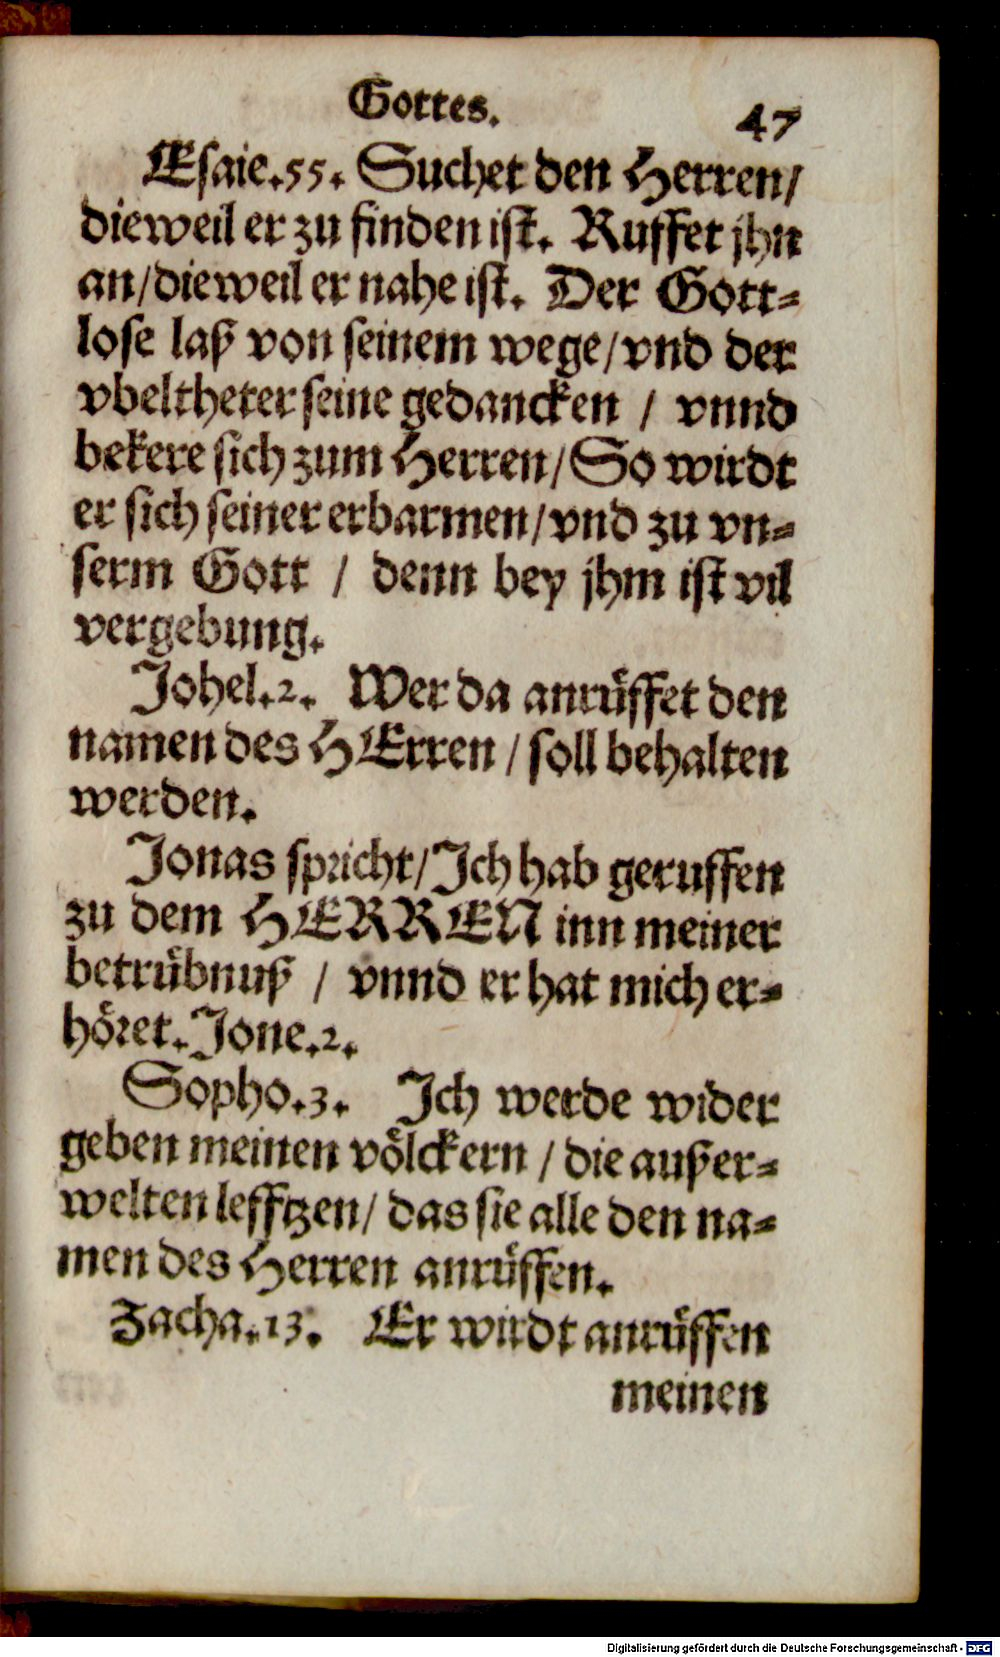 Gottes.
47
Esaie.55. Suchet den Herren/
dieweil er zu finden ist. Ruffet jhn
an/dieweil er nahe ist. Der Gott-
lose laß von seinem wege/vnd der
vbeltheter seine gedancken / vnnd
bekere sich zum Herren/So wirdt
er sich seiner erbarmen/vnd zu vn-
serm Gott / denn bey jhm ist vil
vergebung.
Johel.2. Wer da anruͤffet den
namen des HErren / soll behalten
werden.
Jonas spricht/Ich hab geruffen
zu dem HERREN inn meiner
betruͤbnuß / vnnd er hat mich er-
hoͤret. Jone.2.
Sopho.3. Ich werde wider
geben meinen voͤlckern / die außer-
welten lefftzen/ das sie alle den na-
men des Herren anruͤffen.
Zacha.13. Er wirdt anruͤffen
meinen
Digitalisierung gefördert durch die Deutsche Forschungsgemeinschaft - DFG